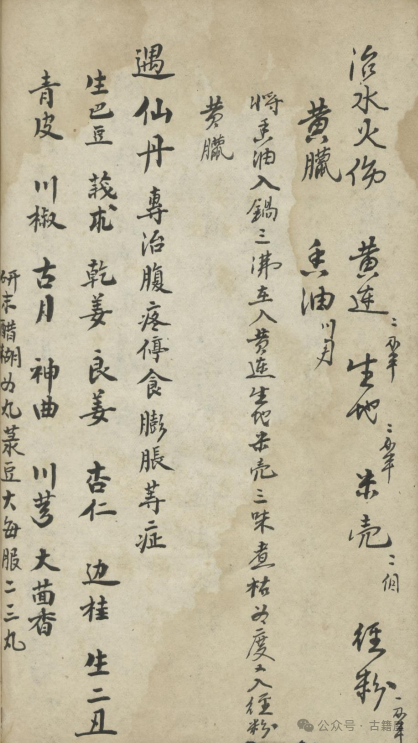 治水火伤 黄连二钱半 生地二钱半 米壳二个 轻粉一钱半
黄臘 香油四两
将香油入锅三沸在入黄连生地米壳三味煮枯为度又入轻粉
黄臘
遇仙丹專治腹疼停食膨脹等症
生巴豆 莪朮 乾姜 良姜 杏仁 边桂 生二丑
青皮 川椒 古月 神曲 川芎 大茴香
研末醋糊为丸菉豆大每服二三丸
公众号·古籍